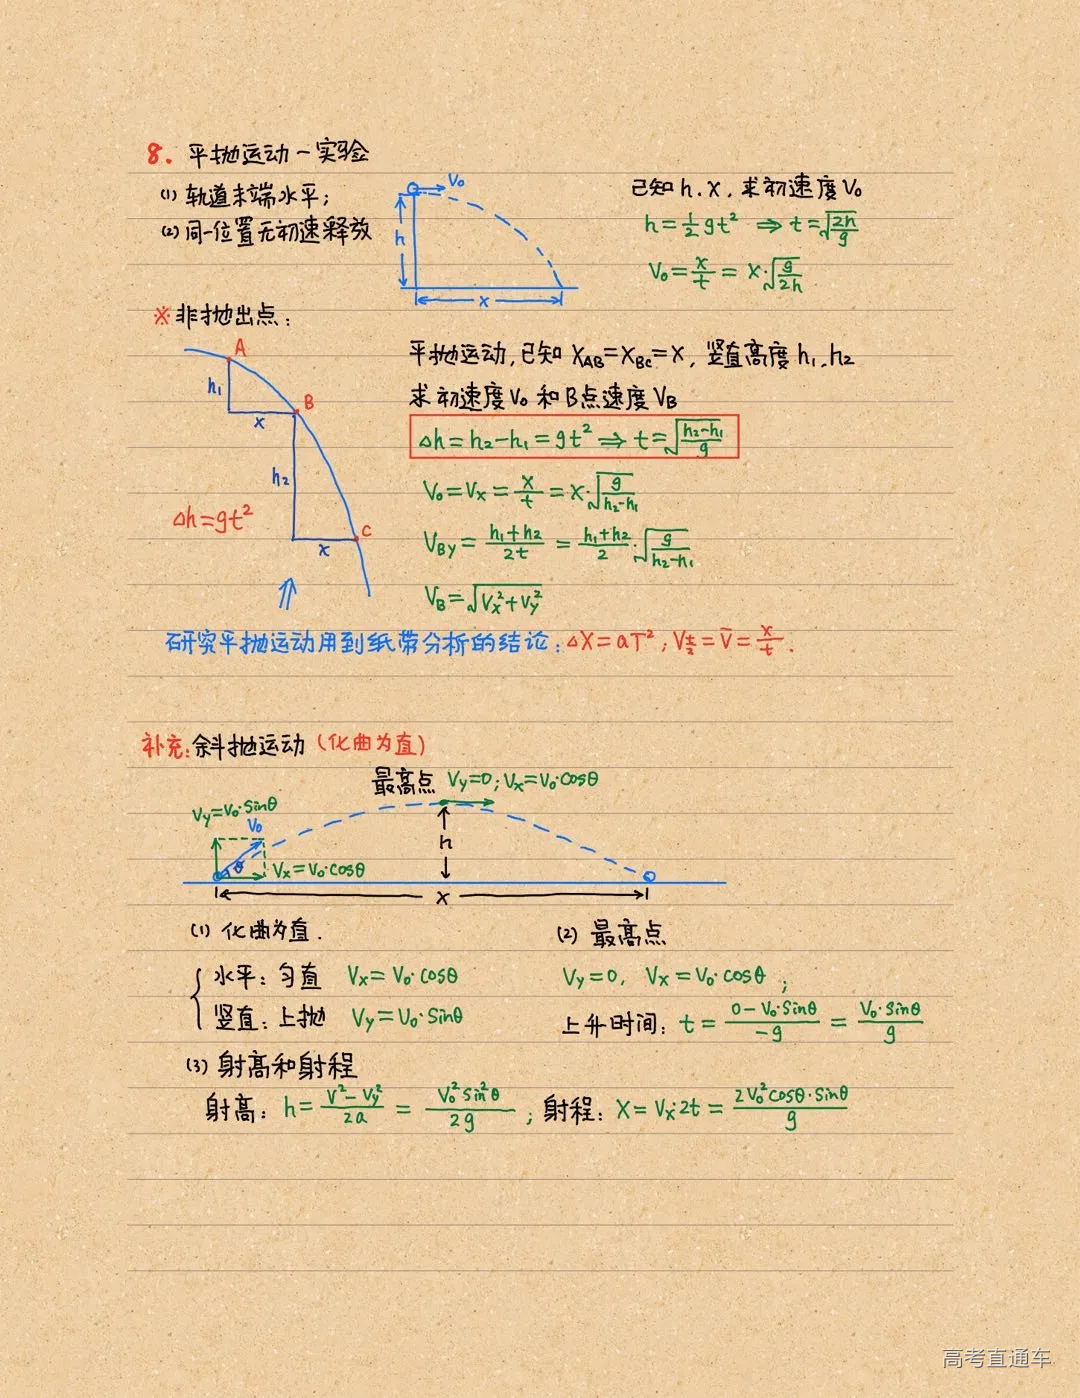 8. 平抛运动-实验
(1) 轨道末端水平;
(2) 同一位置无初速释放
V₀
h
x
已知h.x.求初速度V₀
h=½gt² ⇒ t=√(2h/g)
V₀=x/t=x·√(g/2h)
※非抛出点:
A
h₁
x
B
h₂
x
C
Δh=gt²
平抛运动,已知 X_AB=X_BC=X, 竖直高度h₁、h₂
求初速度V₀和B点速度V_B
Δh=h₂-h₁=gt² ⇒ t=√((h₂-h₁)/g)
V₀=Vx=x/t=x·√(g/(h₂-h₁))
V_By=(h₁+h₂)/2t=(h₁+h₂)/2·√(g/(h₂-h₁))
V_B=√(Vx²+Vy²)
研究平抛运动用到纸带分析的结论:ΔX=aT²;V_(t/2)=V̄=x/t.
补充:斜抛运动(化曲为直)
最高点 Vy=0;Vx=V₀·cosθ
Vy=V₀·sinθ
V₀
θ
Vx=V₀·cosθ
h
x
(1) 化曲为直.
水平:匀直 Vx=V₀·cosθ
竖直:上抛 Vy=V₀·sinθ
(2) 最高点
Vy=0, Vx=V₀·cosθ;
上升时间: t=(0-V₀·sinθ)/(-g)=(V₀·sinθ)/g
(3) 射高和射程
射高: h=(V²-Vy²)/2a=(V₀²sin²θ)/2g ; 射程: X=Vx·2t=(2V₀²cosθ·sinθ)/g
高考直通车